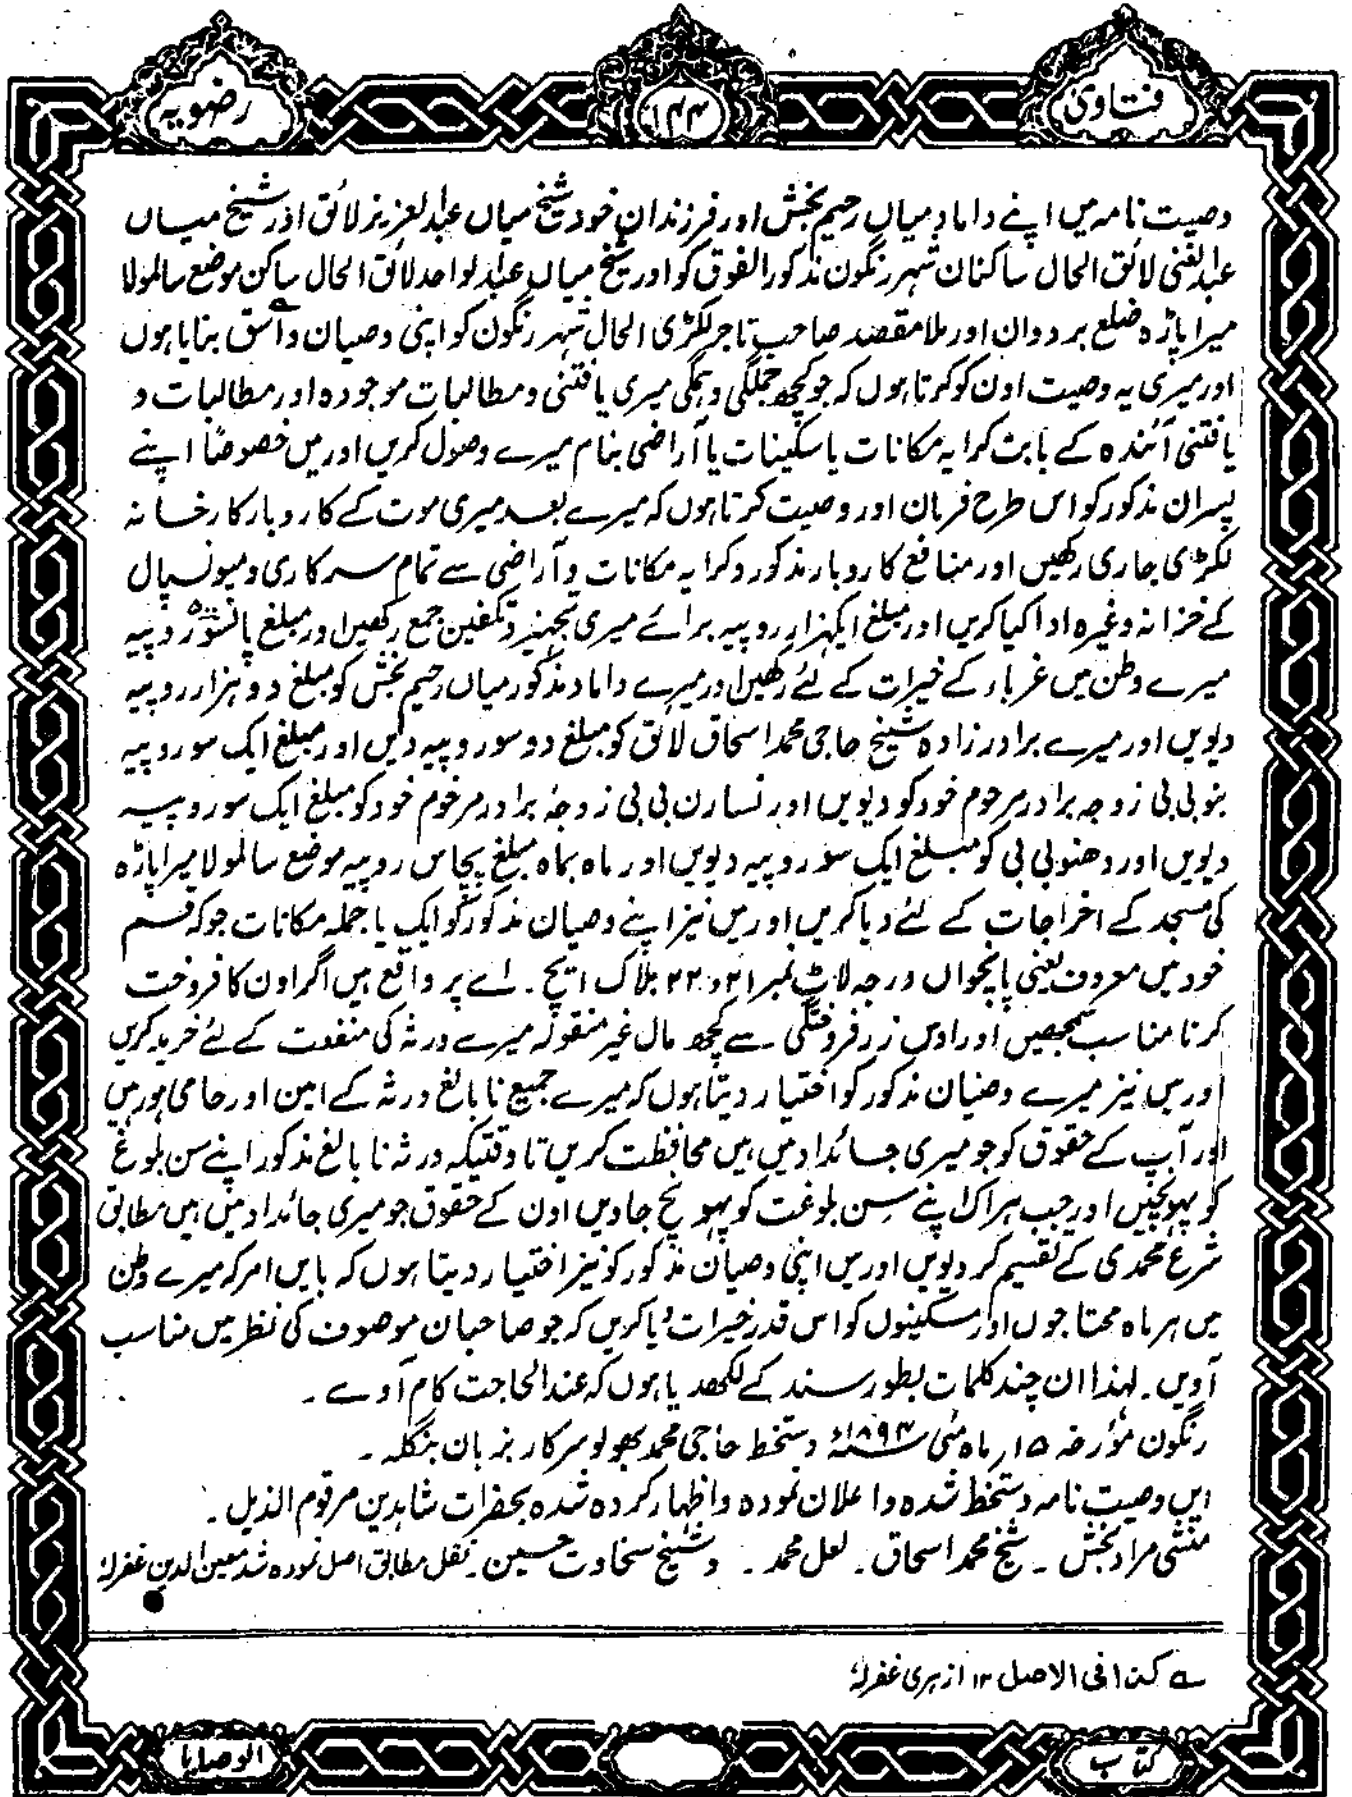 فتاویٰ
۱۴۴
رضویہ
وصیت نامہ میں اپنے داماد میاں رحیم بخش اور فرزندان خود شیخ میاں عبدالعزیز لائق اور شیخ میاں
عبدالغنی لائق الحال ساکنان شہر رنگون مذکور الفوق کو اور شیخ میاں عبدالواحد لائق الحال ساکن موضع سالمولا
میرا پاڑہ ضلع بردوان اور ملا مقصد صاحب تاجر لکڑی الحال شہر رنگون کو اپنی وصیان واسق ؎ بنایا ہوں
اور میری یہ وصیت اون کو کرتا ہوں کہ جو کچھ جملگی و ہمگی میری یافتنی و مطالبات موجودہ اور مطالبات و
یافتنی آئندہ کے بابت کرایہ مکانات یا سکینات یا آراضی بنام میرے وصول کریں اور میں خصوصًا اپنے
پسران مذکور کو اس طرح فرمان اور وصیت کرتا ہوں کہ میرے بعد میری موت کے کاروبار کارخانہ
لکڑی جاری رکھیں اور منافع کاروبار مذکور و کرایہ مکانات و آراضی سے تمام سرکاری و میونسپال
کے خزانہ وغیرہ ادا کیا کریں اور مبلغ ایکہزار روپیہ برائے میری تجہیز و تکفین جمع رکھیں اور مبلغ پانسو ۵۰۰ روپیہ
میرے وطن میں غرباء کے خیرات کے لئے رکھیں اور میرے داماد مذکور میاں رحیم بخش کو مبلغ دو ہزار روپیہ
دیویں اور میرے برادر زادہ شیخ حاجی محمد اسحاق لائق کو مبلغ دو سو روپیہ دیں اور مبلغ ایک سو روپیہ
بنو بی بی زوجہ برادر مرحوم خود کو دیویں اور نسارن بی بی زوجۂ برادر مرحوم خود کو مبلغ ایک سو روپیہ
دیویں اور دھنو بی بی کو مبلغ ایک سو روپیہ دیویں اور ماہ بماہ مبلغ پچاس روپیہ موضع سالمولا میرا پاڑہ
کی مسجد کے اخراجات کے لئے دیا کریں اور میں نیز اپنے وصیان مذکور کو ایک یا جملہ مکانات جو کہ قسم
خود میں معروف یعنی پانچواں درجہ لاٹ نمبر ۲۱ و ۲۲ بلاک ایچ۔ اے پر واقع ہیں اگر اون کا فروخت
کرنا مناسب سمجھیں اور اوس زر فروختگی سے کچھ مال غیر منقولہ میرے ورثہ کی منفعت کے لئے خرید کریں
اور میں نیز میرے وصیان مذکور کو اختیار دیتا ہوں کہ میرے جمیع نا بالغ ورثہ کے امین اور حامی ہوویں
اور آپ کے حقوق کو جو میری جائداد میں ہیں محافظت کریں تا وقتیکہ ورثہ نا بالغ مذکور اپنے سن بلوغ
کو پہونچیں اور جب ہر اک اپنے سن بلوغت کو پہونچ جاویں اون کے حقوق جو میری جائداد میں ہیں مطابق
شرع محمدی کے تقسیم کر دیویں اور میں اپنی وصیان مذکور کو نیز اختیار دیتا ہوں کہ بایں امر کہ میرے وطن
میں ہر ماہ محتاجوں اور مسکینوں کو اس قدر خیرات دیا کریں کہ جو صاحبان موصوف کی نظر میں مناسب
آویں۔ لہذا ان چند کلمات بطور سند کے لکھدیا ہوں کہ عند الحاجت کام آوے۔
رنگون مؤرخہ ۱۵؍ ماہ مئی ۱۸۹۴ء دستخط حاجی محمد بھولو سرکار بزبان بنگلہ۔
ایں وصیت نامہ دستخط شدہ و اعلان نمودہ و اظہار کردہ شدہ بحضرات شاہدین مرقوم الذیل۔
منشی مراد بخش ۔ شیخ محمد اسحاق ۔ لعل محمد ۔ و شیخ سخاوت حسین ۔ نقل مطابق اصل نمودہ شد معین الدین غفرلہٗ
؎ کذا فی الاصل ۱۲ ازہری غفرلہٗ
کتاب
الوصایا